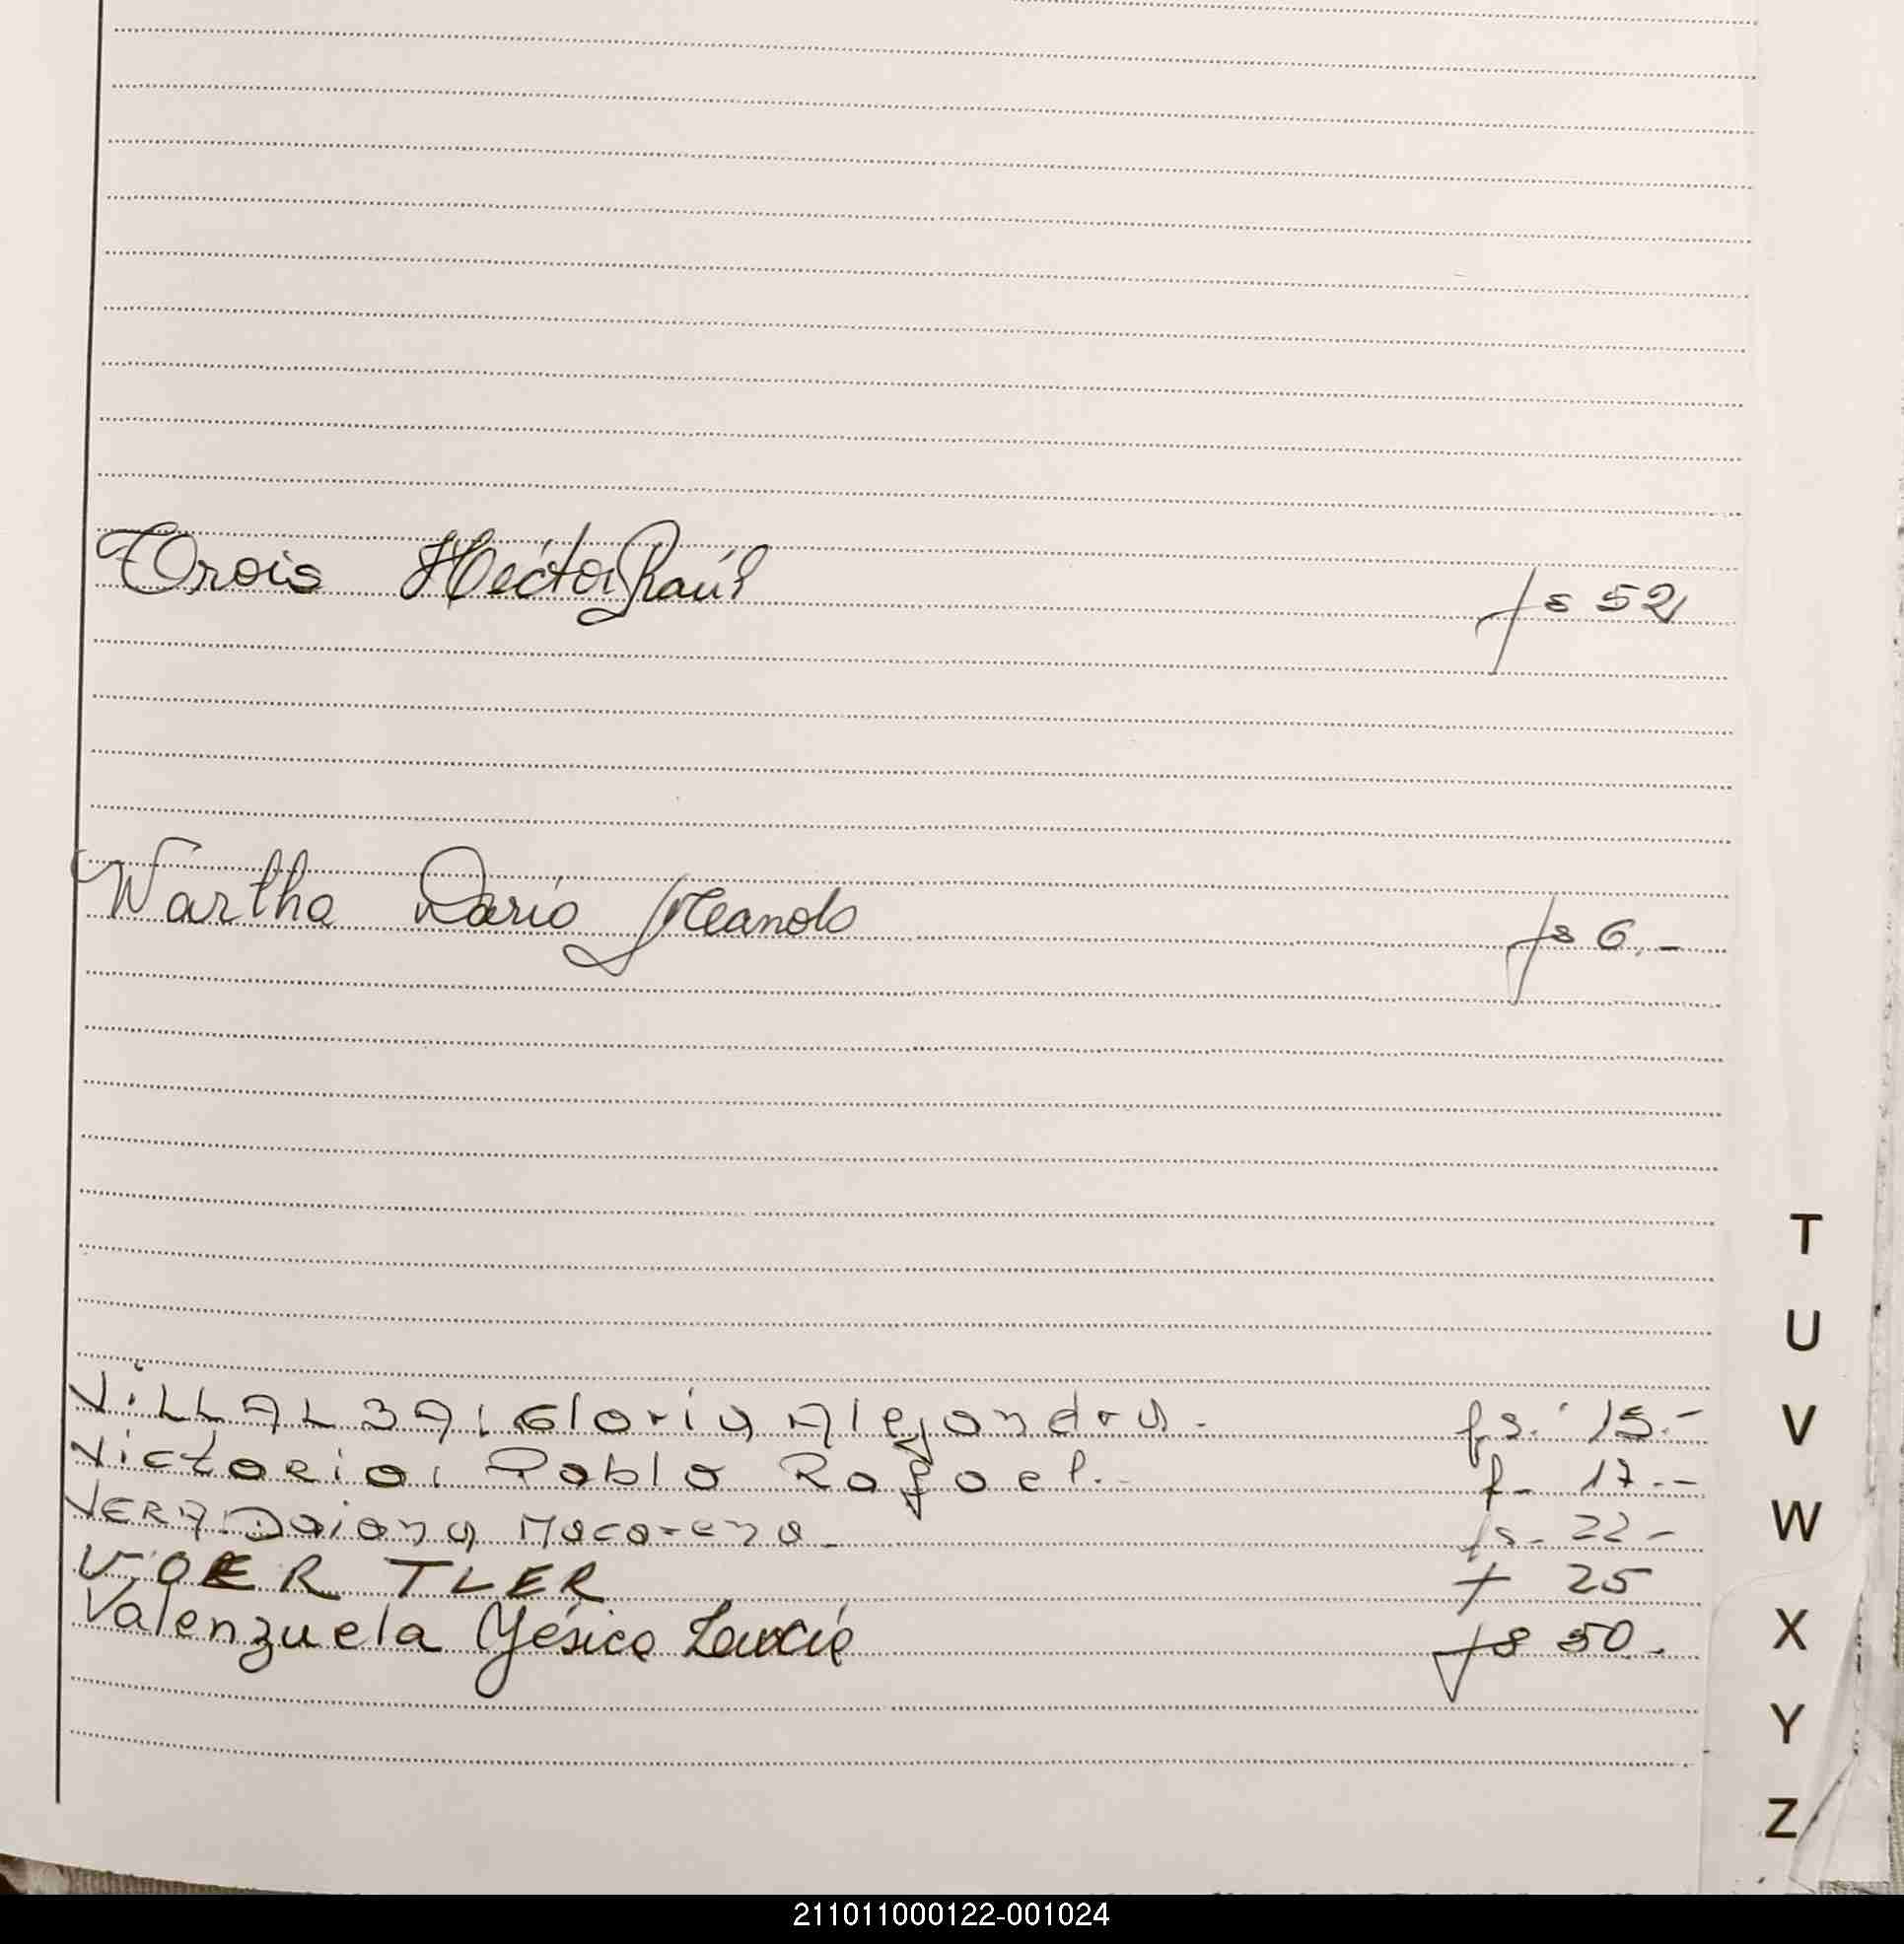 Orois Héctor Raúl fs 52
Wartha Darío fs 6.-
T
U
ViLLALBA, Gloria Alejandra. fs. 15.-
V
Victorio, Pablo Rafael. f- 17.-
VERA Daiana Macarena. fs- 22-
W
VOERTLER f 25
Valenzuela Yésica Lucía fs 50.
X
Y
Z
211011000122-001024